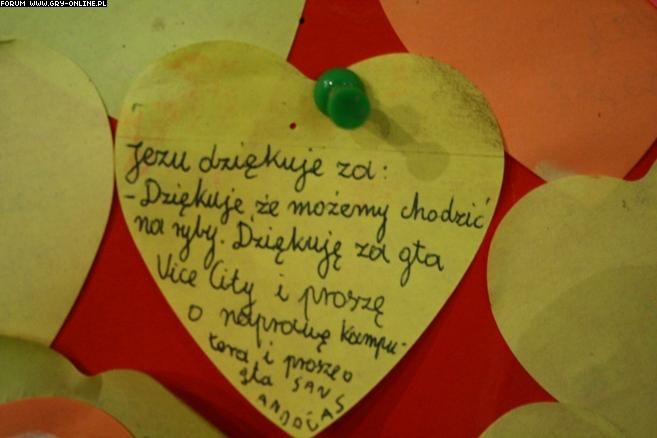 FORUM WWW.GRY-ONLINE.PL
Jezu dziękuje za:
- Dziękuje że możemy chodzić
na ryby. Dziękuję za gta
Vice City i proszę
o naprawę kompu-
tera i proszę o
gta SANS
ANDOCAS